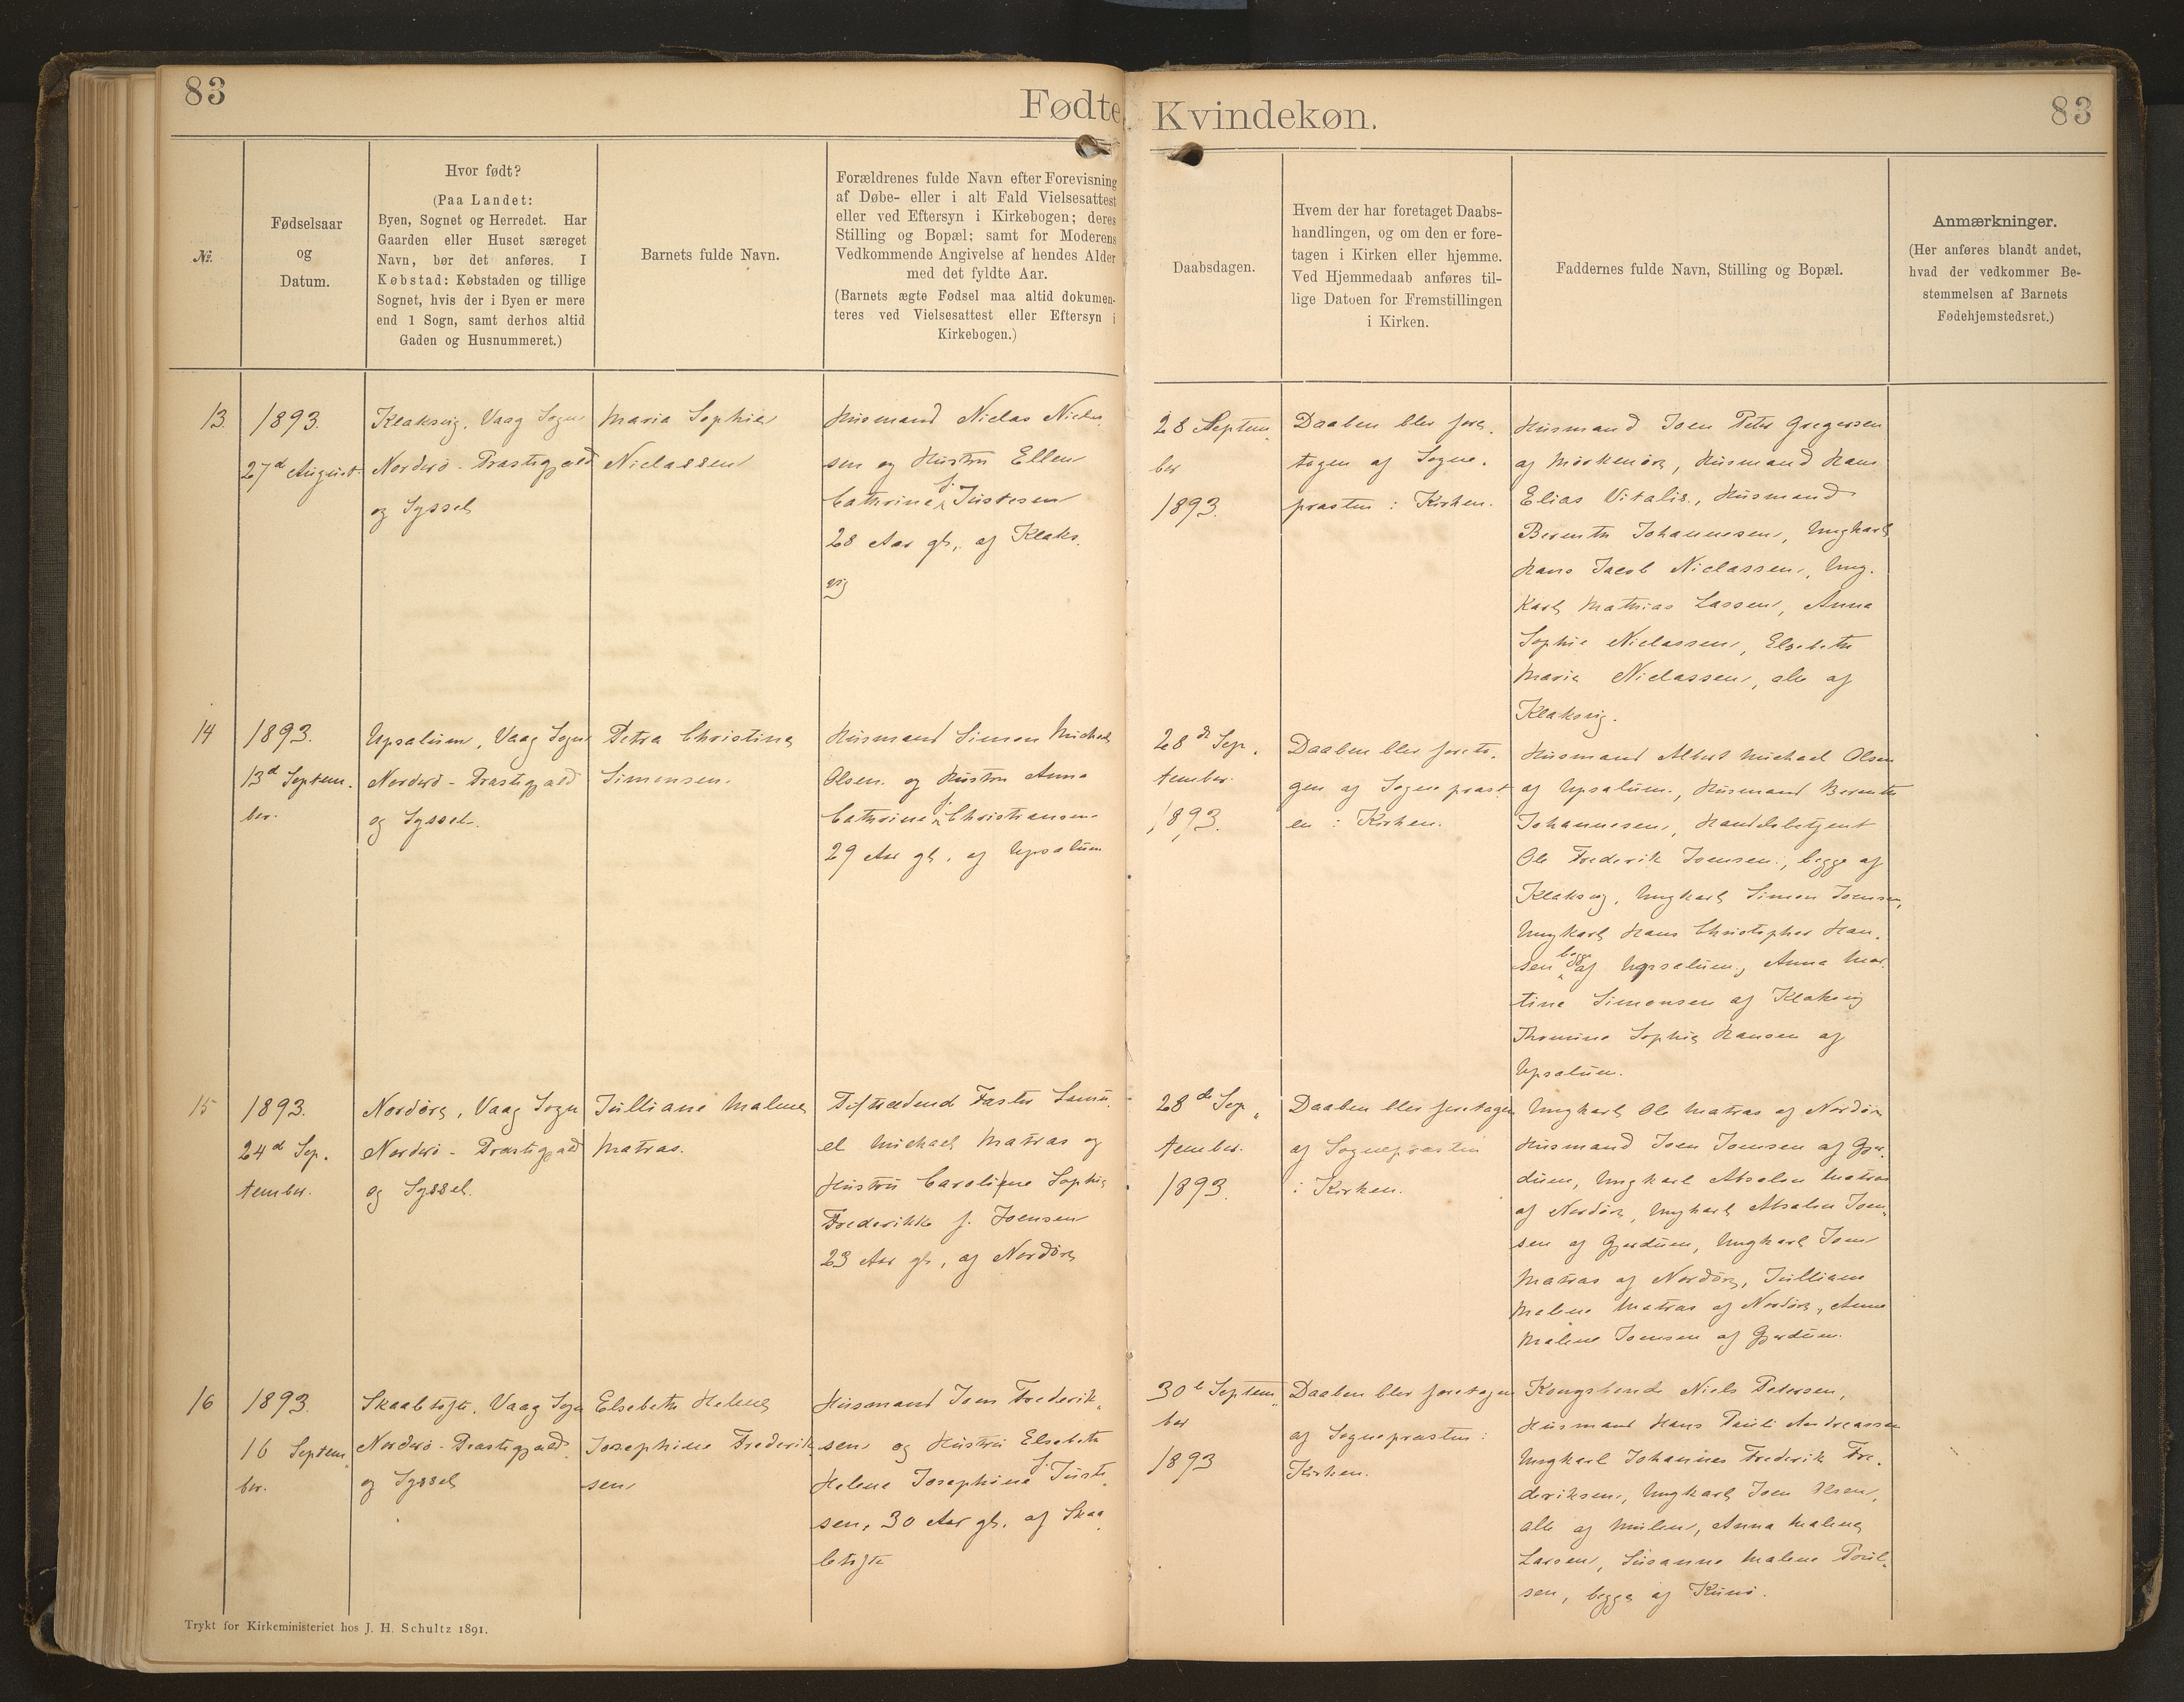 83
Fødte
Kvindekøn.
83
№.
Fødselsaar
og
Datum.
Hvor født?
(Paa Landet:
Byen, Sognet og Herredet. Har
Gaarden eller Huset særeget
Navn, bør det anføres. I
Købstad: Købstaden og tillige
Sognet, hvis der i Byen er mere
end 1 Sogn, samt derhos altid
Gaden og Husnummeret.)
Barnets fulde Navn.
Forældrenes fulde Navn efter Forevisning
af Døbe- eller i alt Fald Vielsesattest
eller ved Eftersyn i Kirkebogen; deres
Stilling og Bopæl; samt for Moderens
Vedkommende Angivelse af hendes Alder
med det fyldte Aar.
(Barnets ægte Fødsel maa altid dokumen-
teres ved Vielsesattest eller Eftersyn i
Kirkebogen.)
Daabsdagen.
Hvem der har foretaget Daabs-
handlingen, og om den er fore-
tagen i Kirken eller hjemme.
Ved Hjemmedaab anføres til-
lige Datoen for Fremstillingen
i Kirken.
Faddernes fulde Navn, Stilling og Bopæl.
Anmærkninger.
(Her anføres blandt andet,
hvad der vedkommer Be-
stemmelsen af Barnets
Fødehjemstedsret.)
13.
1893.
27d August
Klaksvig, Vaag Sogn
Norderø - Præstegjæld
og Syssel
Maria Sophie
Niclassen
Husmand Niclas Niclas-
sen og Hustru Ellen
Cathrine f. Justesen
28 Aar gl., af Klaks-
vig
28 Septem-
ber
1893.
Daaben blev fore-
tagen af Sogne-
præsten i Kirken.
Husmand Joen Peter Gregersen
af Mørkenøre, Husmand Hans
Elias Vitalis, Husmand
Berenth Johannesen, Ungkarl
Hans Jacob Niclassen, Ung-
karl Mathias Lassen, Anna
Sophie Niclassen, Elsebeth
Maria Niclassen, alle af
Klaksvig.
14
1893.
13d Septem-
ber.
Upsalum, Vaag Sogn
Norderø - Præstegjæld
og Syssel.
Petra Christine
Simonsen.
Husmand Simon Michael
Olsen og Hustru Anna
Cathrine f. Christiansen
29 Aar gl., af Upsalum
28de Sep-
tember.
1893.
Daaben blev foreta-
gen af Sognepræst-
en i Kirken.
Husmand Albert Michael Olsen
af Upsalum, Husmand Berenth
Johannesen, Handelsbetjent
Ole Frederik Joensen, begge af
Klaksvig, Ungkarl Simon Joensen,
Ungkarl Hans Christopher Han-
sen begge af Upsalum, Anna Mar-
tine Simonsen af Klaksvig
Thomine Sophie Hansen af
Upsalum.
15
1893.
24d Sep-
tember.
Nordøre, Vaag Sogn
Norderø - Præstegjæld
og Syssel.
Julliane Malene
Matras.
Tiltrædend Fæster Samu-
el Michael Matras og
Hustru Caroline Sophie
Frederikke f. Joensen
23 Aar gl., af Nordøre
28de Sep-
tember.
1893.
Daaben blev foretagen
af Sognepræsten
i Kirken.
Ungkarl Ole Matras af Nordøre
Husmand Joen Joensen af Gjer-
dum, Ungkarl Absalon Matras
af Nordøre, Ungkarl Absalon Joen-
sen af Gjerdum, Ungkarl Joen
Matras af Nordøre, Julliane
Malene Matras af Nordøre, Anne
Malene Joensen af Gjerdum.
16
1893.
16 Septem-
ber.
Skaaletofte, Vaag Sogn
Norderø - Præstegjæld.
og Syssel
Elsebeth Helene
Josephine Frederik
sen
Husmand Joen Frederik-
sen og Hustru Elsebeth
Helene Josephine f. Juste-
sen, 30 Aar gl. af Skaa-
letofte
30te Septem-
ber
1893
Daaben blev foretagen
af Sognepræsten i
Kirken.
Kongsbonde Niels Petersen,
Husmand Hans Pauli Andreassen
Ungkarl Johannes Frederik Fre-
deriksen, Ungkarl Joen Olsen,
alle af Mulen, Anna Malene
Larsen, Susanne Malene Poul-
sen, begge af Kunø.
Trykt for Kirkeministeriet hos J. H. Schultz 1891.